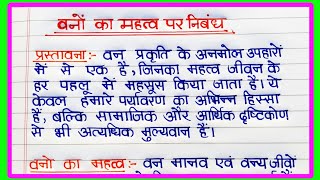 वनों का महत्व पर निबंध
प्रस्तावना :- वन प्रकृति के अनमोल उपहारों
में से एक हैं, जिनका महत्व जीवन के
हर पहलू में महसूस किया जाता है। ये
केवल हमारे पर्यावरण का अभिन्न हिस्सा
हैं, बल्कि सामाजिक और आर्थिक दृष्टिकोण
से भी अत्यधिक मूल्यवान हैं।
वनों का महत्व :- वन मानव एवं वन्य जीवों